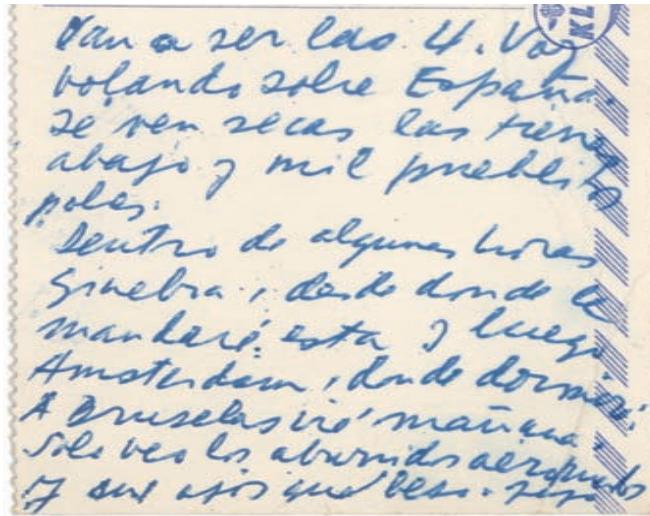 KL
Van a ser las 4. Voy
volando sobre España.
Se ven secas las tierras
abajo y mil pueblitos
Dentro de algunas horas
Ginebra, desde donde le
mandaré esta y luego
Amsterdam, donde dormiré.
A Bruselas iré mañana.
Solo veo los aburridos aeropuertos
y sus ojos que beso.